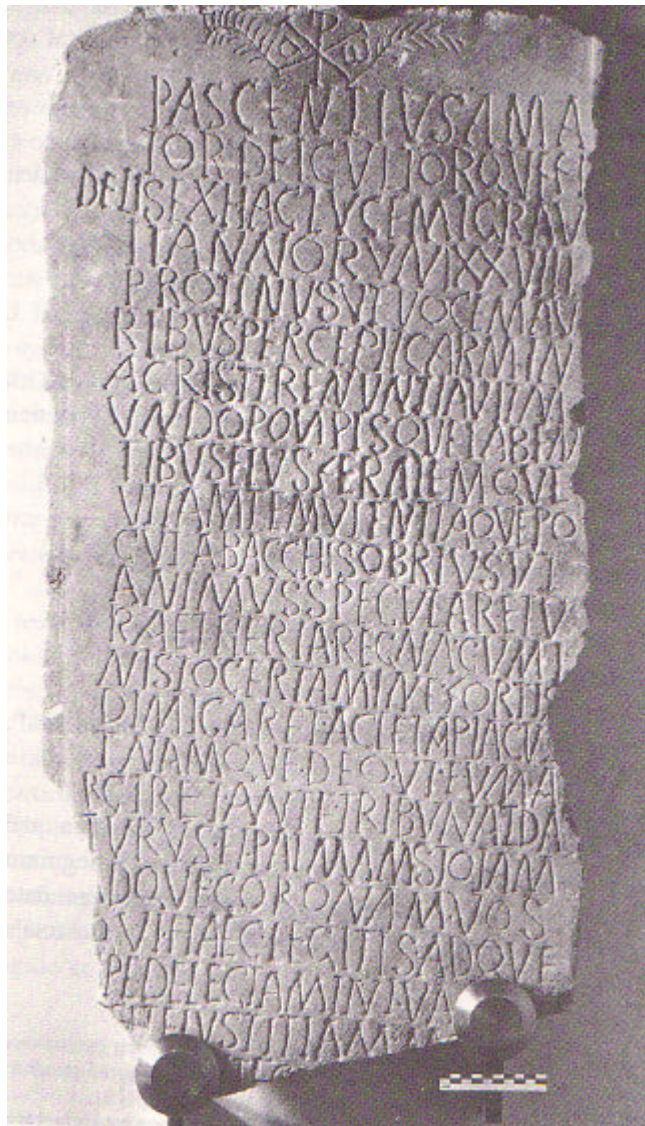 PASCENTIVSAMA
TORDEICVLTORQVEFI
DELISEXHACLVCEMIGRAV
ITANNORVMXXVIIII
PROTINVSVTVOCEMAV
RIBVSPERCEPITCARMIN
ACRISTIRENVNTIAVITM
VNDOPOMPISQVELABEN
TIBVSEIVSFERALEMQVE
VITAMTEMVLENTIAQVEPO
CVLABACCHISOBRIVSVT
ANIMVSSPECVLARETV
RAETHERIAREGNACVMI
NISTOCERTAMINEFORTIS
DIMICARET
TNAMQVEDEOVTEVMA
RCIRETANTETRIBVNALDA
TVRVSEIPALMAMSTOLAM
DQVECORONAMVOS
QVIHAECLEGITISADQVE
PEDELECTAMINIVA
IVSTITIAM